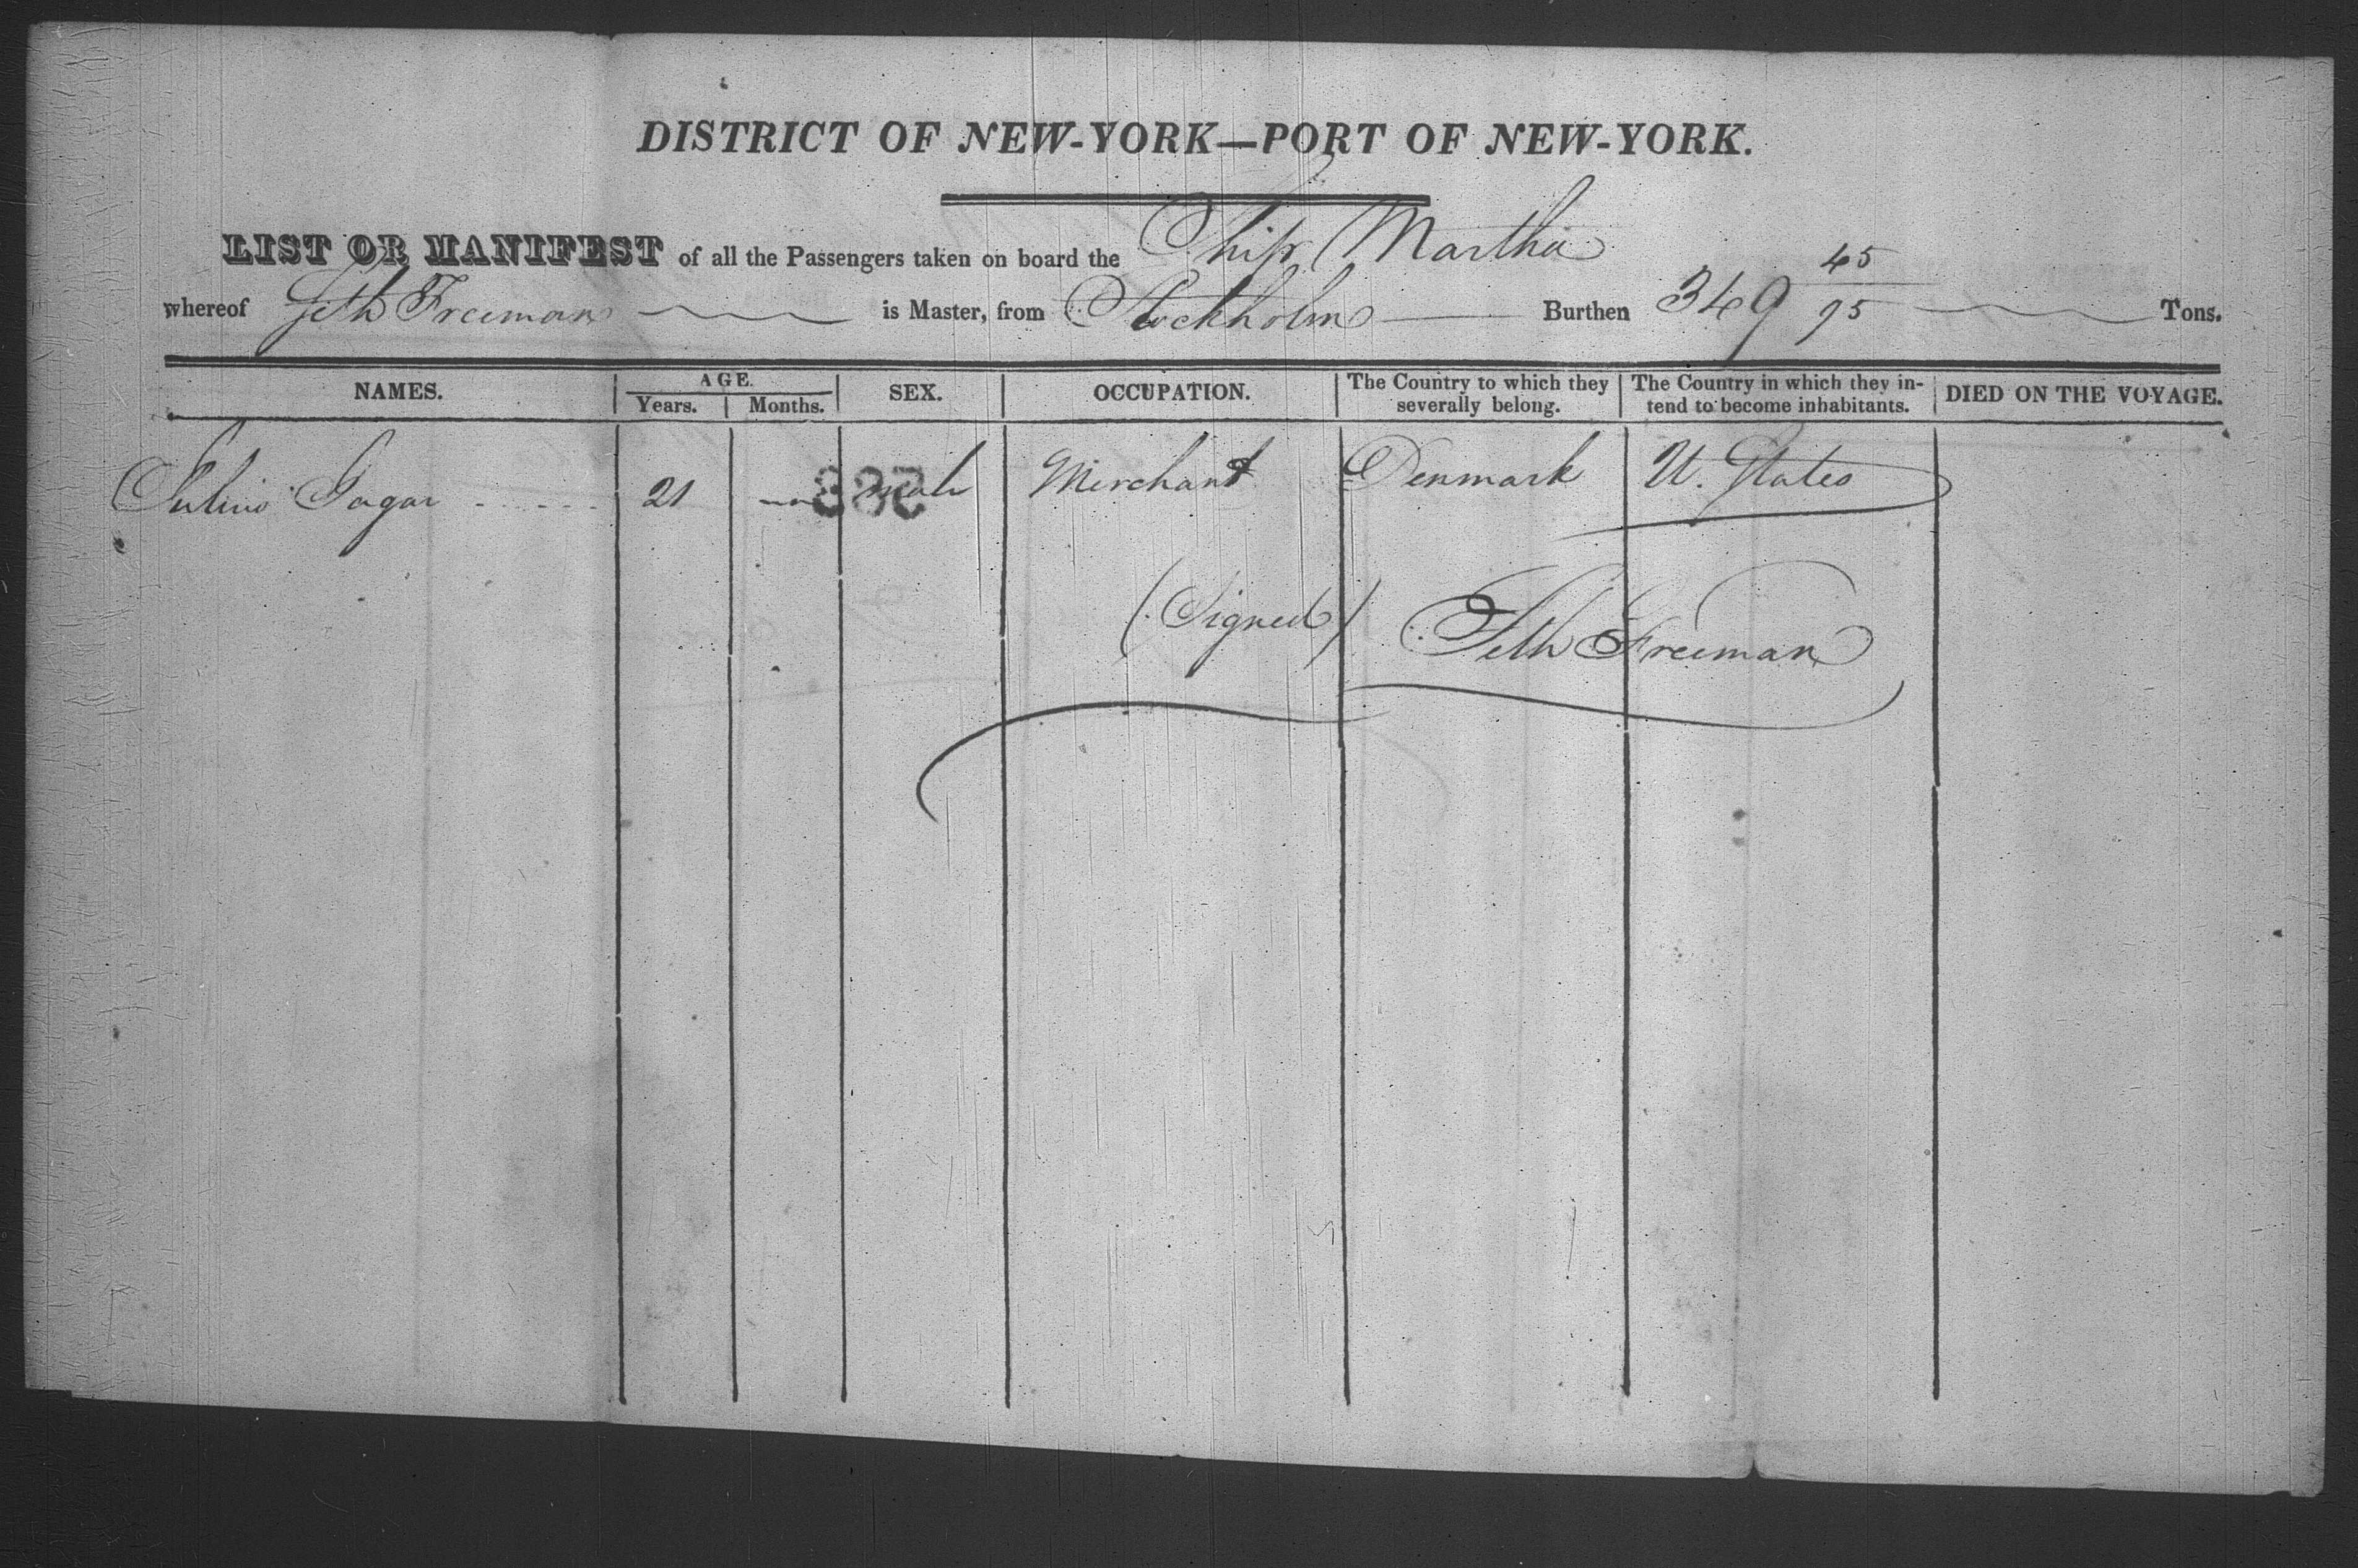 DISTRICT OF NEW-YORK—PORT OF NEW-YORK.
LIST OR MANIFEST of all the Passengers taken on board the Ship Martha
whereof Seth Freeman is Master, from Stockholm Burthen 349 45/95 Tons.
NAMES. AGE. Years. Months. SEX. OCCUPATION. The Country to which they severally belong. The Country in which they intend to become inhabitants. DIED ON THE VOYAGE.
21 male Merchant Denmark U. States
(Signed) Seth Freeman